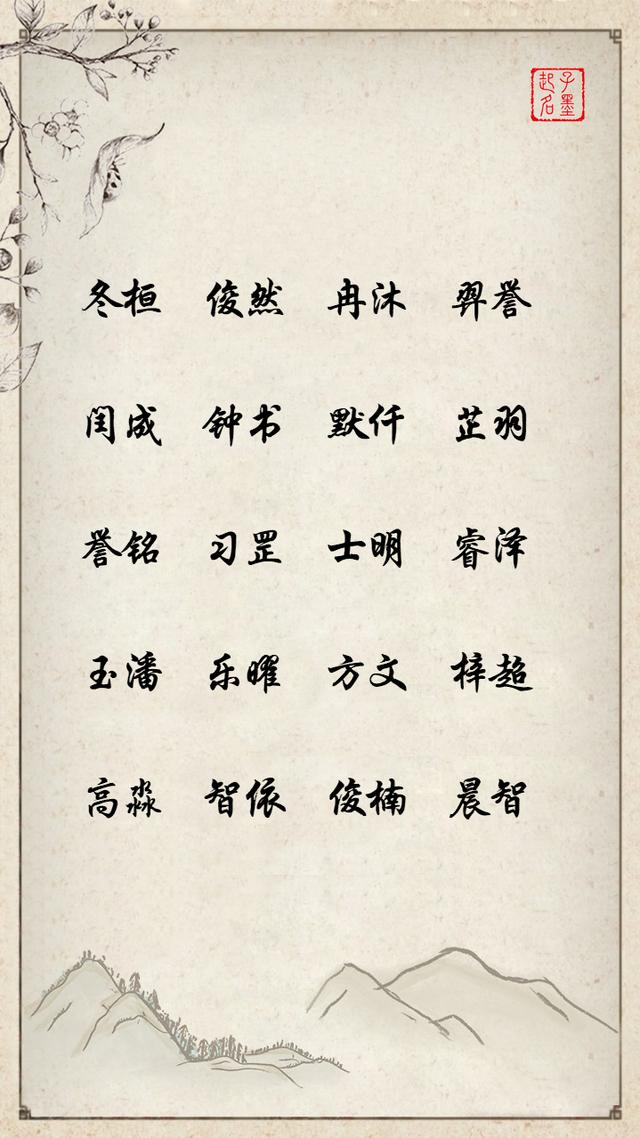 子墨
起名
冬桓 俊然 冉沐 羿誉
闰成 钟书 默仟 芷羽
誉铭 习罡 士明 睿泽
玉潘 乐曜 方文 梓超
高淼 智依 俊楠 晨智